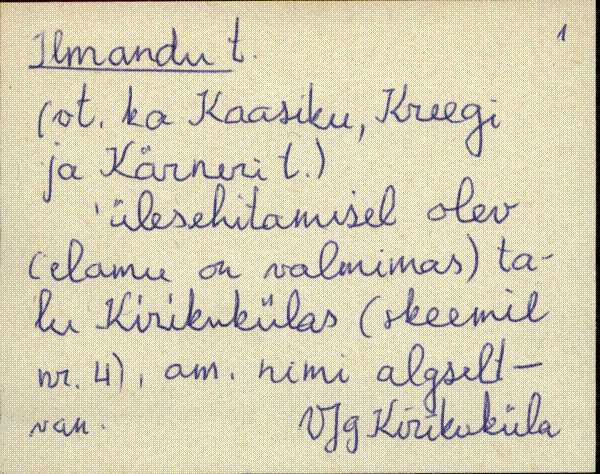 Ilmandu t. 1
(vt. ka Kaasiku, Kreegi
ja Kärneri t.)
'ülesehitamisel olev
(elamu on valmimas) ta-
lu Kirikukülas (skeemil
nr. 4), am. nimi algselt —
van. VJg Kirikuküla